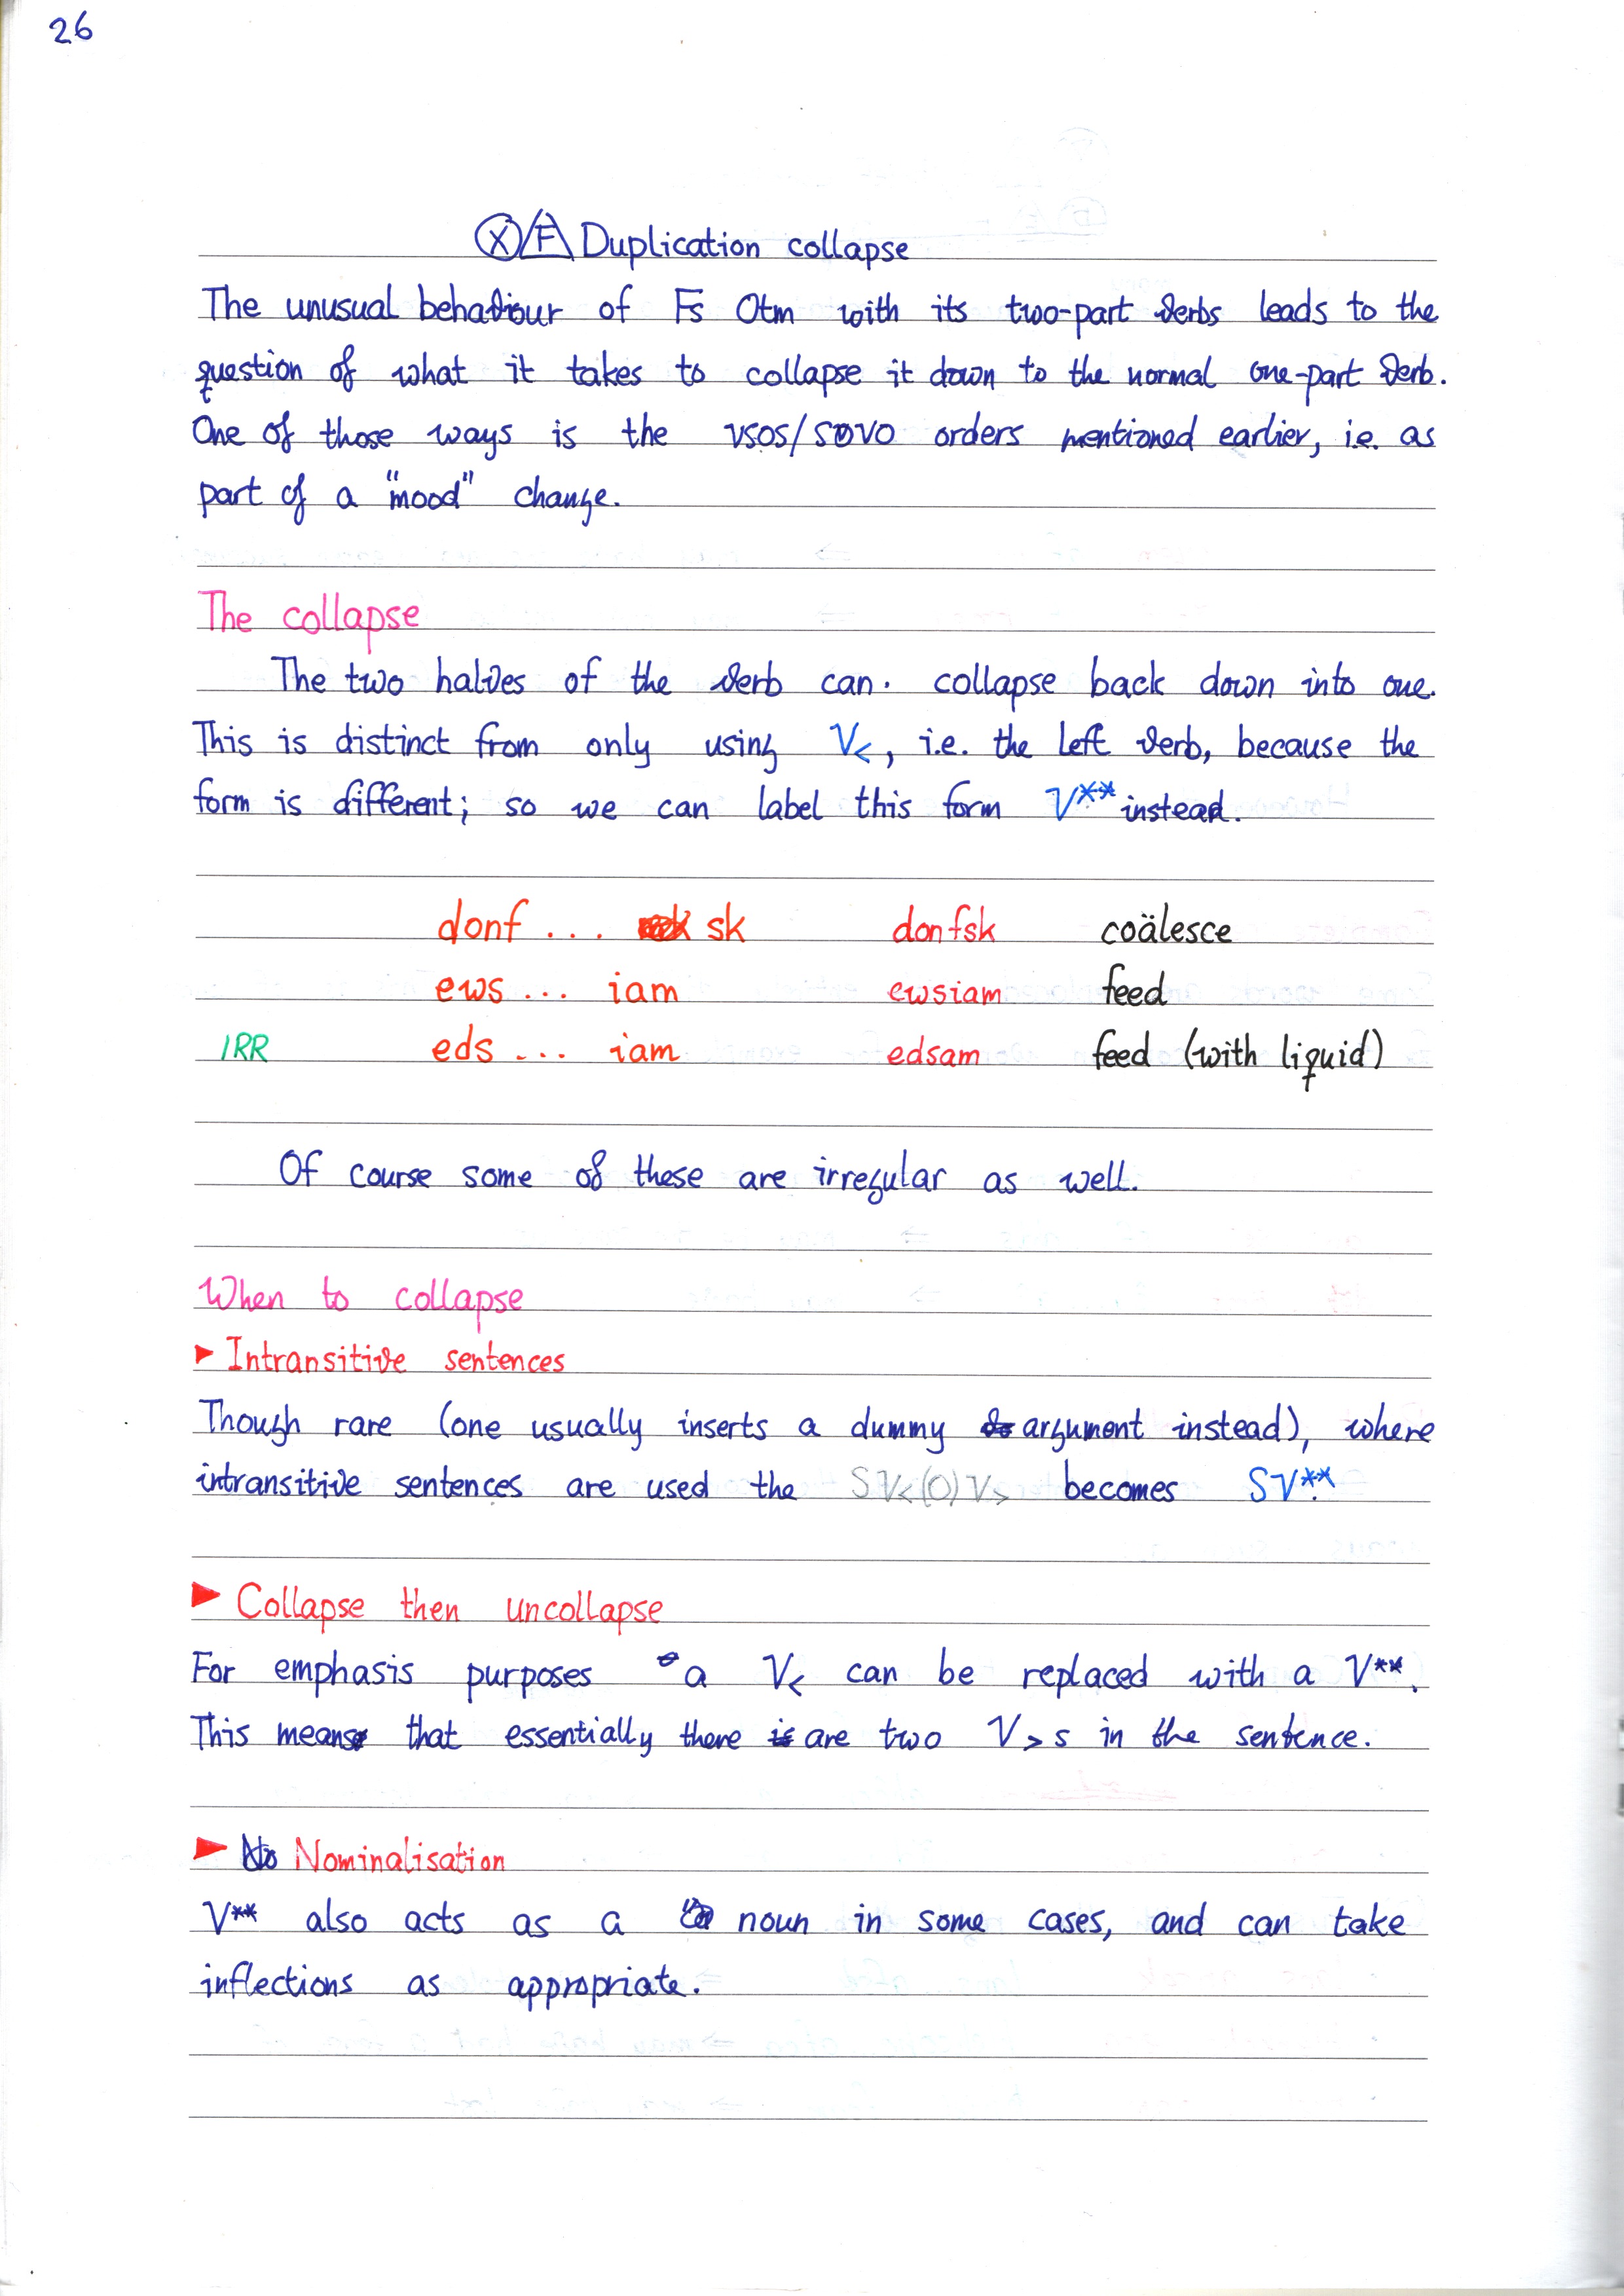 26
Ⓧ/F Duplication collapse
The unusual behaviour of Fs Otm with its two-part verbs leads to the
question of what it takes to collapse it down to the normal one-part verb.
One of those ways is the VSOS/SOVO orders mentioned earlier, i.e. as
part of a "mood" change.
The collapse
The two halves of the verb can. collapse back down into one.
This is distinct from only using V<, i.e. the left verb, because the
form is different; so we can label this form V** instead.
donf ... sk donfsk coälesce
ews ... iam ewsiam feed
IRR eds ... iam edsam feed (with liquid)
Of course some of these are irregular as well.
When to collapse
► Intransitive sentences
Though rare (one usually inserts a dummy argument instead), where
intransitive sentences are used the SV<(O)V> becomes SV**.
► Collapse then uncollapse
For emphasis purposes a V< can be replaced with a V**.
This means that essentially there are two V>s in the sentence.
► Nominalisation
V** also acts as a noun in some cases, and can take
inflections as appropriate.